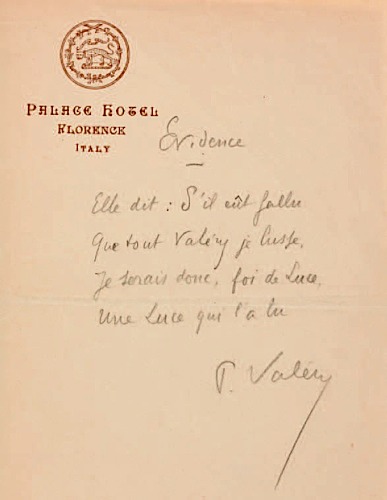 PALACE HOTEL
FLORENCE
ITALY
Evidence
Elle dit : S'il eût fallu
Que tout Valéry je lusse,
Je serais donc, foi de Luce,
Une Luce qui l'a lu
P. Valéry